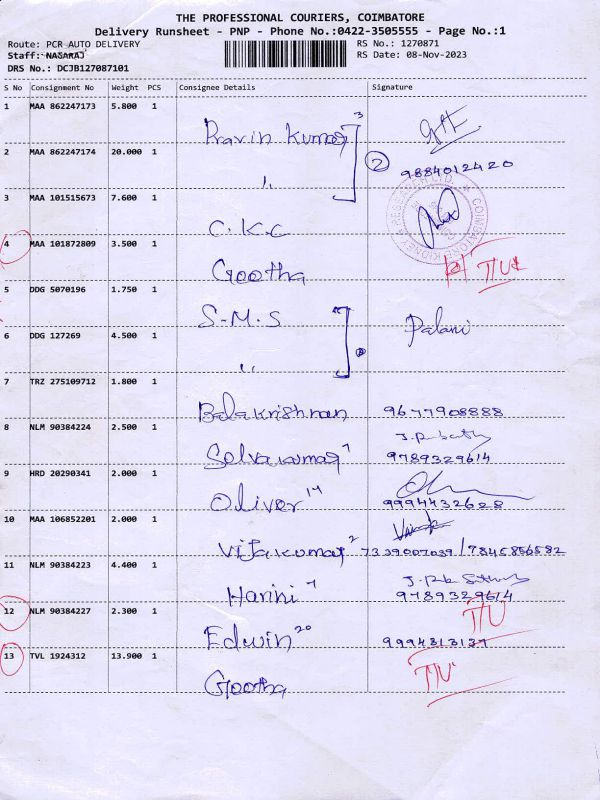 THE PROFESSIONAL COURIERS, COIMBATORE
Delivery Runsheet - PNP - Phone No.:0422-3505555 - Page No.:1
Route: PCR AUTO DELIVERY
RS No.: 1270871
Staff: NAGARAJ
RS Date: 08-Nov-2023
DRS No.: DCJB127087101
S No Consignment No Weight PCS Consignee Details Signature
1 MAA 862247173 5.800 1
Pravin Kumar 3
2 MAA 862247174 20.000 1
2 9884012420
,,
3 MAA 101515673 7.600 1
C.K.C
4 MAA 101872809 3.500 1
Geetha
TIU
5 DDG 5070196 1.750 1
S-M-S
6 DDG 127269 4.500 1
Palani
,,
7 TRZ 275109712 1.800 1
Balakrishnan 9677908888
8 NLM 90384224 2.500 1
Selvakumar 7 9789329614
9 HRD 20290341 2.000 1
Oliver 14 9994432628
10 MAA 106852201 2.000 1
Vijakumar 2 7339007039 / 7845856582
11 NLM 90384223 4.400 1
Harini 7 9789329614
12 NLM 90384227 2.300 1
TIU
Edwin 20 9994313137
13 TVL 1924312 13.900 1
Geetha
TIU